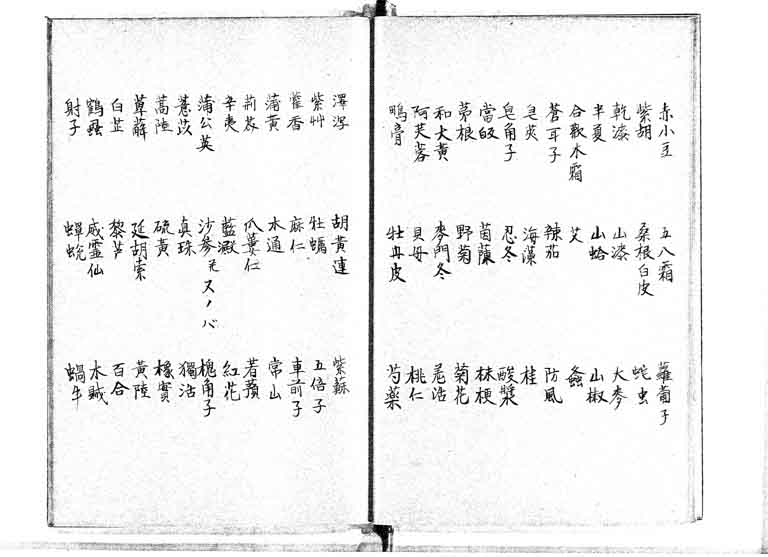 赤小豆　五八霜　蘿蔔子
紫胡　桑根白皮　蛇虫
乾漆　山漆　大麥
半夏　山蛤　山椒
合歡木霜　艾　螽
蒼耳子　辣茄　防風
皂莢　海藻　桂
皂角子　忍冬　酸漿
當皈　茵蔯　秫梗
茅根　野菊　菊花
和大黄　麥門冬　羌活
阿芙蓉　貝母　桃仁
鴨膏　牡丹皮　芍藥
澤泻　胡黄連　紫蘇
紫艸　牡蠣　五倍子
藿香　麻仁　車前子
蒲黄　木通　常山
荊芥　瓜蔞仁　茗蘋
辛夷　藍澱　紅花
蒲公英　沙參 スノバ　槐角子
薏苡　真珠　獨活
蒿陸　硫黄　橡實
萆薢　延胡索　黄陸
白芷　藜芦　百合
鶴虱　威霊仙　水賊
射子　蟬蛻　蝸牛